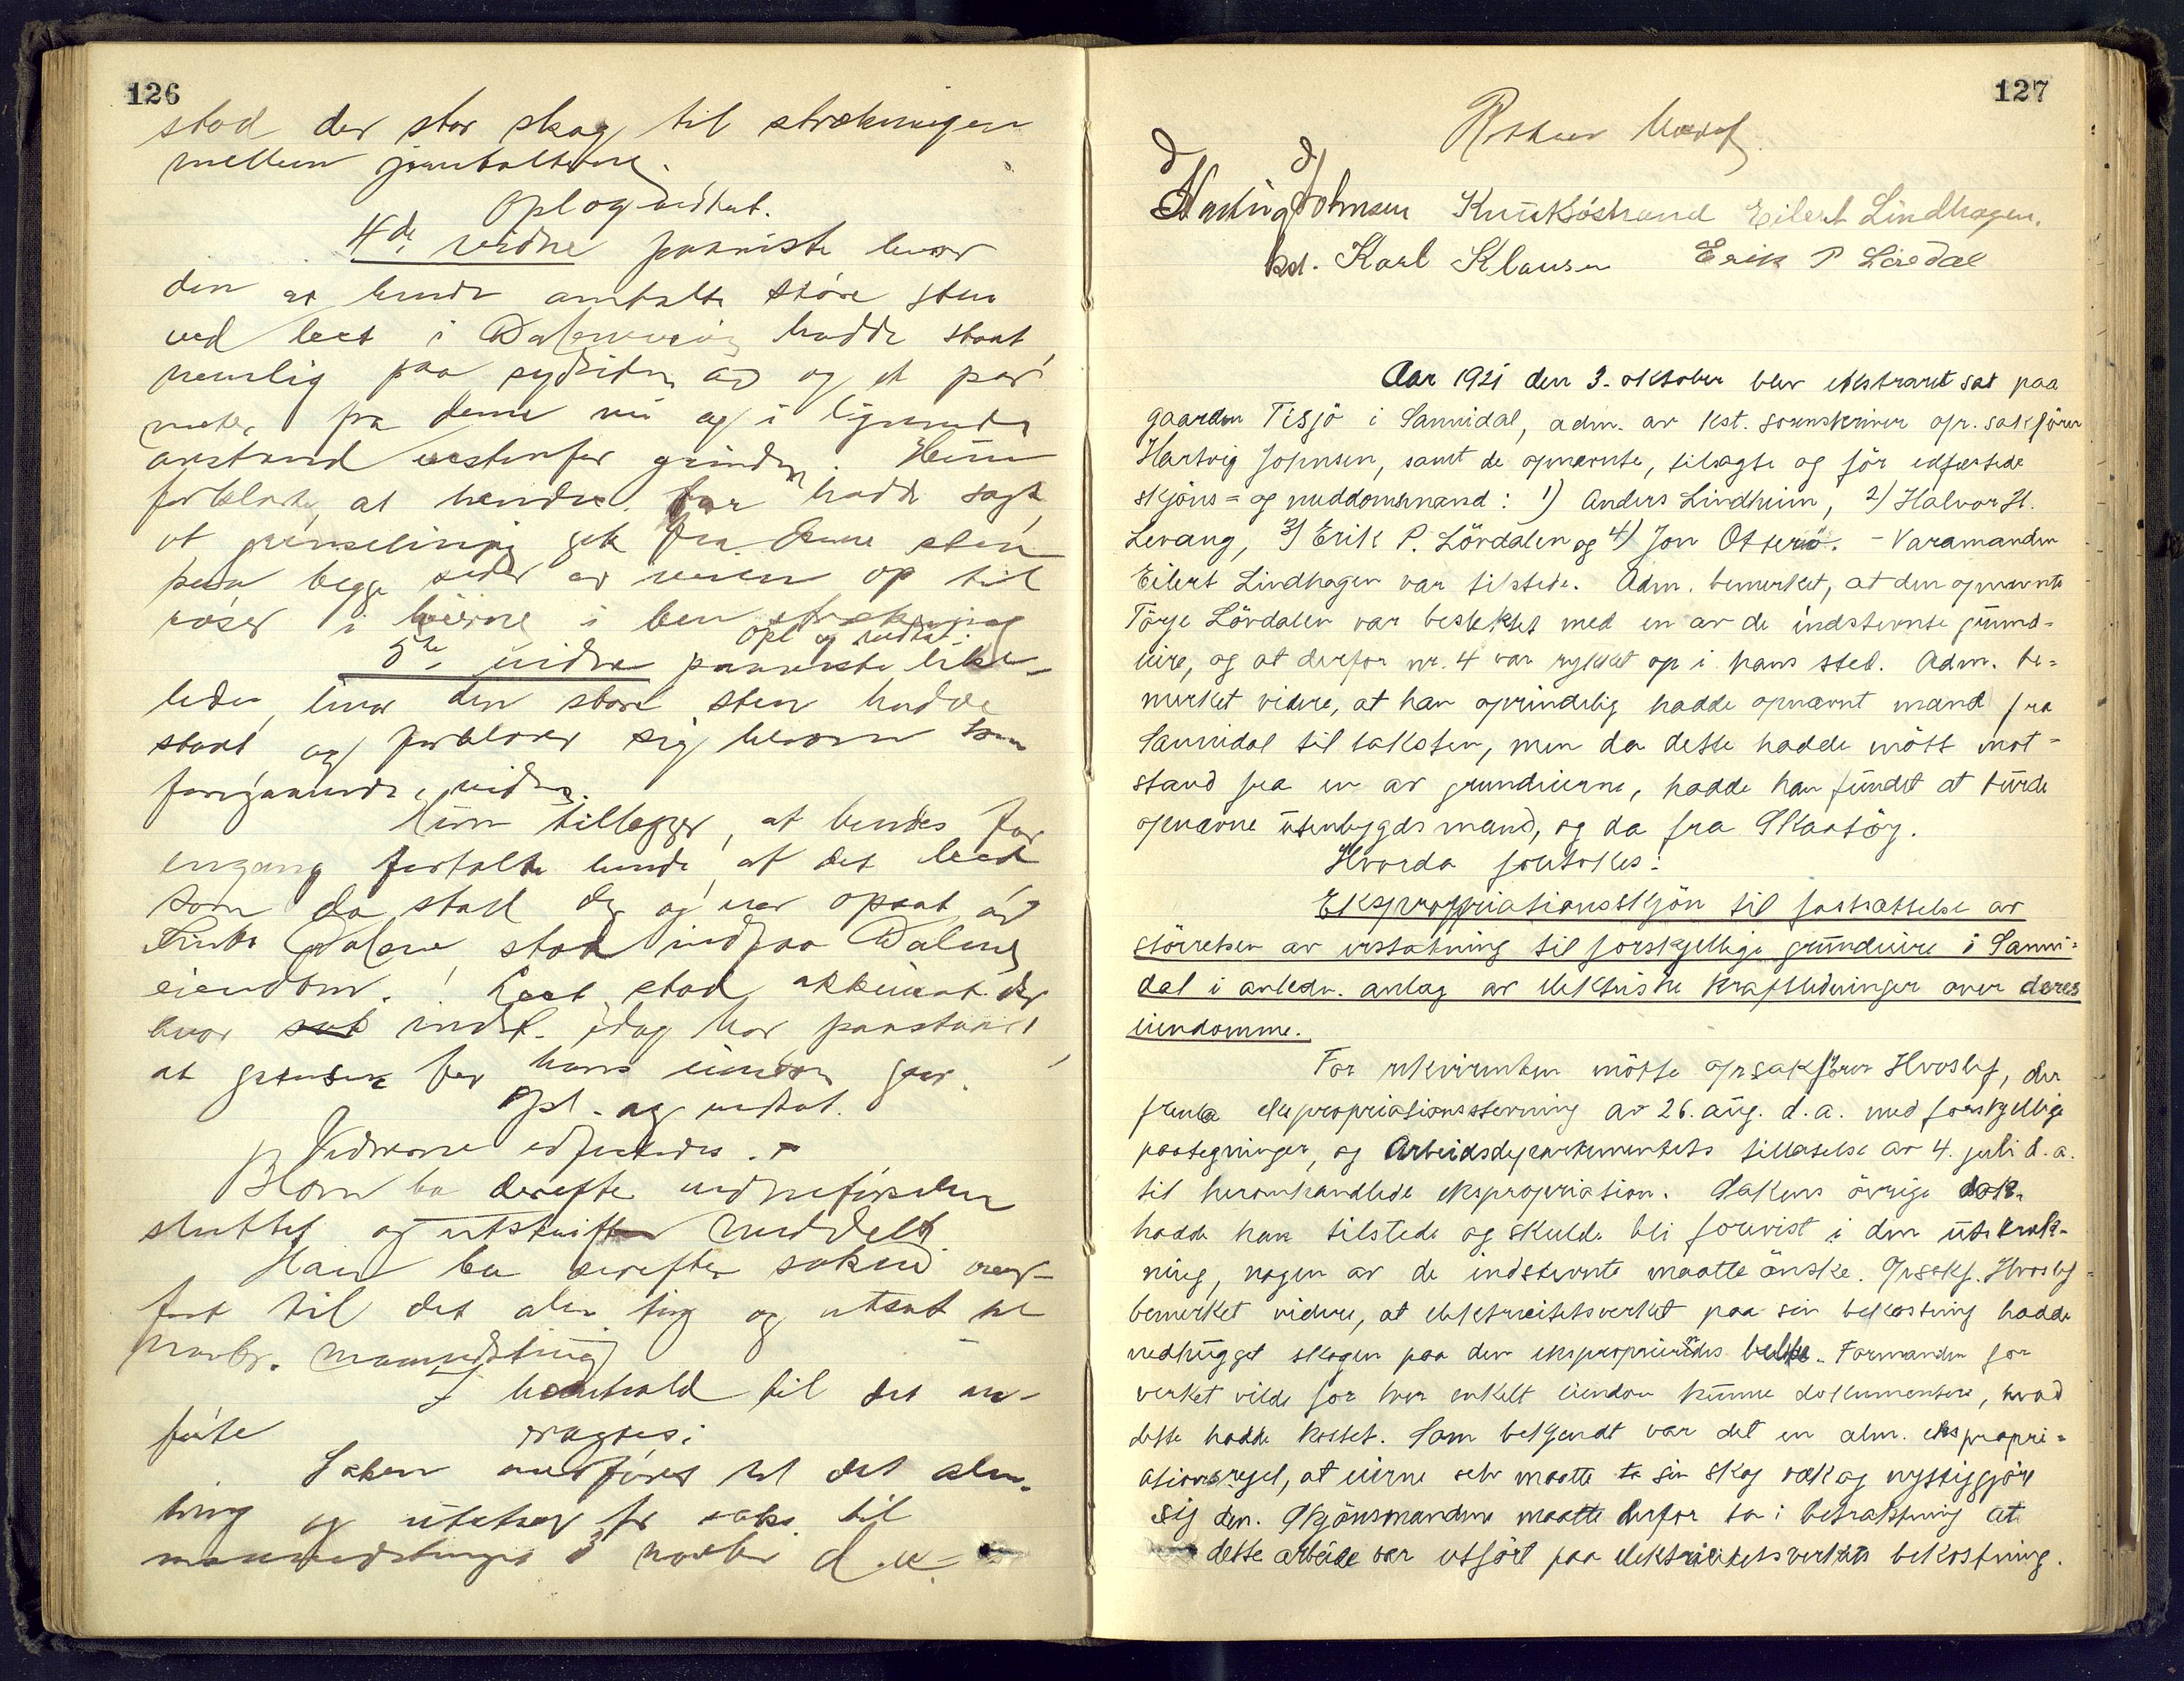 126
stod der stor skog til strækningen
mellem jernboltene.
Opl og vedtat.
4de vidne paaviste hvor
den av hende omtalte störe sten
ved leet i Dalsveien hadde staat
nemlig paa sydsiden av og et par
meter fra denne nu og i lignende
avstand vestenfor grinden. Hun
forklarte, at hendes far hadde sagt
at grænselinjen gik fra denne sten
paa begge sider av veien op til
röser i heierne i ben strækning
Opl og vedtat.
5te vidne paaviste like-
ledes, hvor den store sten hadde
staat og forklarer sig herom som
foregaaende vidne.
Hun tillægger, at hendes far
engang fortalte hende at det leed
som da stod der og var opsat av
Dalene stod ind paa Dalens
eiendom. Leet stod akkurat der
hvor indst. idag har paastaaet
at grænsen for hans eiendom gaar.
Opl. og vedtat.
Vidnerne edfæstedes.
Blom ba derefter vidneförselen
sluttet og utskrift meddelt
Han ba derefter saken over-
fört til det alm. ting og utsat til
novbr. maanedsting
I henhold til det an-
förte vragtes:
Saken overföres til det alm.
ting og utsættes for saks. til
maanedstinget i novbr d.a.
127
Hartvig Johnsen Knut Kjöstrand Eilert Lindhagen.
kst. Karl Klausen Erik P Lövdal
Aar 1921 den 3. oktober blev ekstraret sat paa
gaarden Tisjö i Sannidal, adm. av kst. sorenskriver opr. sakförer
Hartvig Johnsen, samt de opnævnte, tilsagte og för edfæstede
skjöns= og meddomsmænd: 1) Anders Lindheim, 2) Halvor H.
Levang, 3) Erik P. Lövdalen og 4) Jon Otterö. - Varamanden
Eilert Lindhagen var tilstede. Adm. bemerket, at den opnævnte
Törje Lövdalen var beslektet med en av de indstevnte grund-
eiere, og at derfor nr. 4 var rykket op i hans sted. Adm. be=
merket videre, at han oprindelig hadde opnævnt mænd fra
Sannidal til taksten, men da dette hadde mött mot-
stand fra en av grundeierne, hadde han fundet at burde
opnævne utenbygds mænd, og da fra Skaatöy.
Hvorda foretokes:
Ekspropriationsskjön til fastsættelse av
störrelsen av erstatning til forskjellige grundeiere i Sanni=
dal i anledn. anlæg av elektriske kraftledninger over deres
eiendomme.
For rekvirenten mötte oprsakförer Hvoslef, der
fremla ekspropriationsstevning av 26. aug. d. a. med forskjellige
paategninger, og Arbeidsdepartementets tillatelse av 4. juli d. a.
til heromhandlede ekspropriation. Sakens övrige dok.
hadde han tilstede og skulde bli forevist i den utstræk-
ning, nogen av de indstevnte maatte önske. Oprsakf. Hvoslef
bemerket videre, at elektricitetsverket paa sin bekostning hadde
nedhugget skogen paa den eksproprieredes belte. Formanden for
verket vilde for hver enkelt eiendom kunne dokumentere, hvad
dette hadde kostet. Som bekjendt var det en alm. ekspropri=
ationsregel, at eierne selv maatte ta sin skog væk og nyttiggjöre
sig den. Skjönsmændene maatte derfor ta i betraktning at
dette arbeide var utfört paa elektricitetsverkets bekostning.